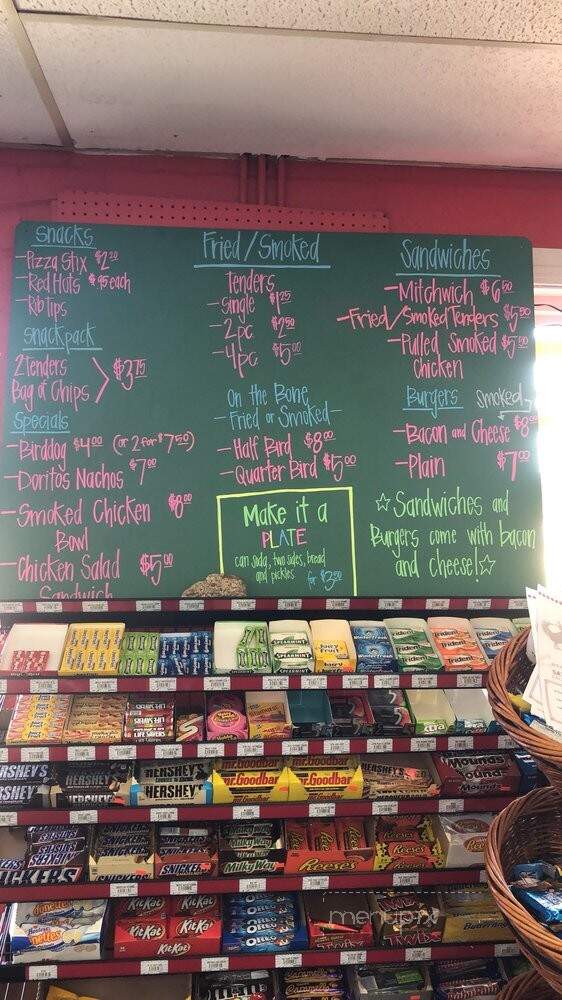 Snacks
-Pizza Stix $2.50
-Red Hots $.95 each
-Rib Tips
Snackpack
2 Tenders
Bag of Chips
$3.75
Specials
-Birddog $4.00 (or 2 for $7.50)
-Doritos Nachos $7.00
-Smoked Chicken $8.00
Bowl
-Chicken Salad $5.00
Sandwich
Fried/Smoked
Tenders
-Single $1.25
-2pc $2.50
-4pc $5.00
On the Bone
-Fried or Smoked-
-Half Bird $8.00
-Quarter Bird $5.00
Make it a
PLATE
can soda, two sides, bread
and pickles for $3.50
Sandwiches
-Mitchwich $6.50
-Fried/Smoked Tenders $5.50
-Pulled Smoked $5.50
chicken
Burgers Smoked
-Bacon and Cheese $8
-Plain $7.00
☆Sandwiches and
Burgers come with bacon
and cheese!☆
SPEARMINT
Juicy
Trident
Trident
Trident
extra
HERSHEY'S
HERSHEY'S
HERSHEY'S
HERSHEY'S
Mr.Goodbar
Mr.Goodbar
Mr.Goodbar
Mr.Goodbar
HERSHEY'S
Mounds
Mounds
SNICKERS
SNICKERS
Milky Way
Reese's
Reese's
KitKat
KitKat
KitKat
KitKat
OREO
OREO
TWIX
Butterfinger
Caramello
menupix